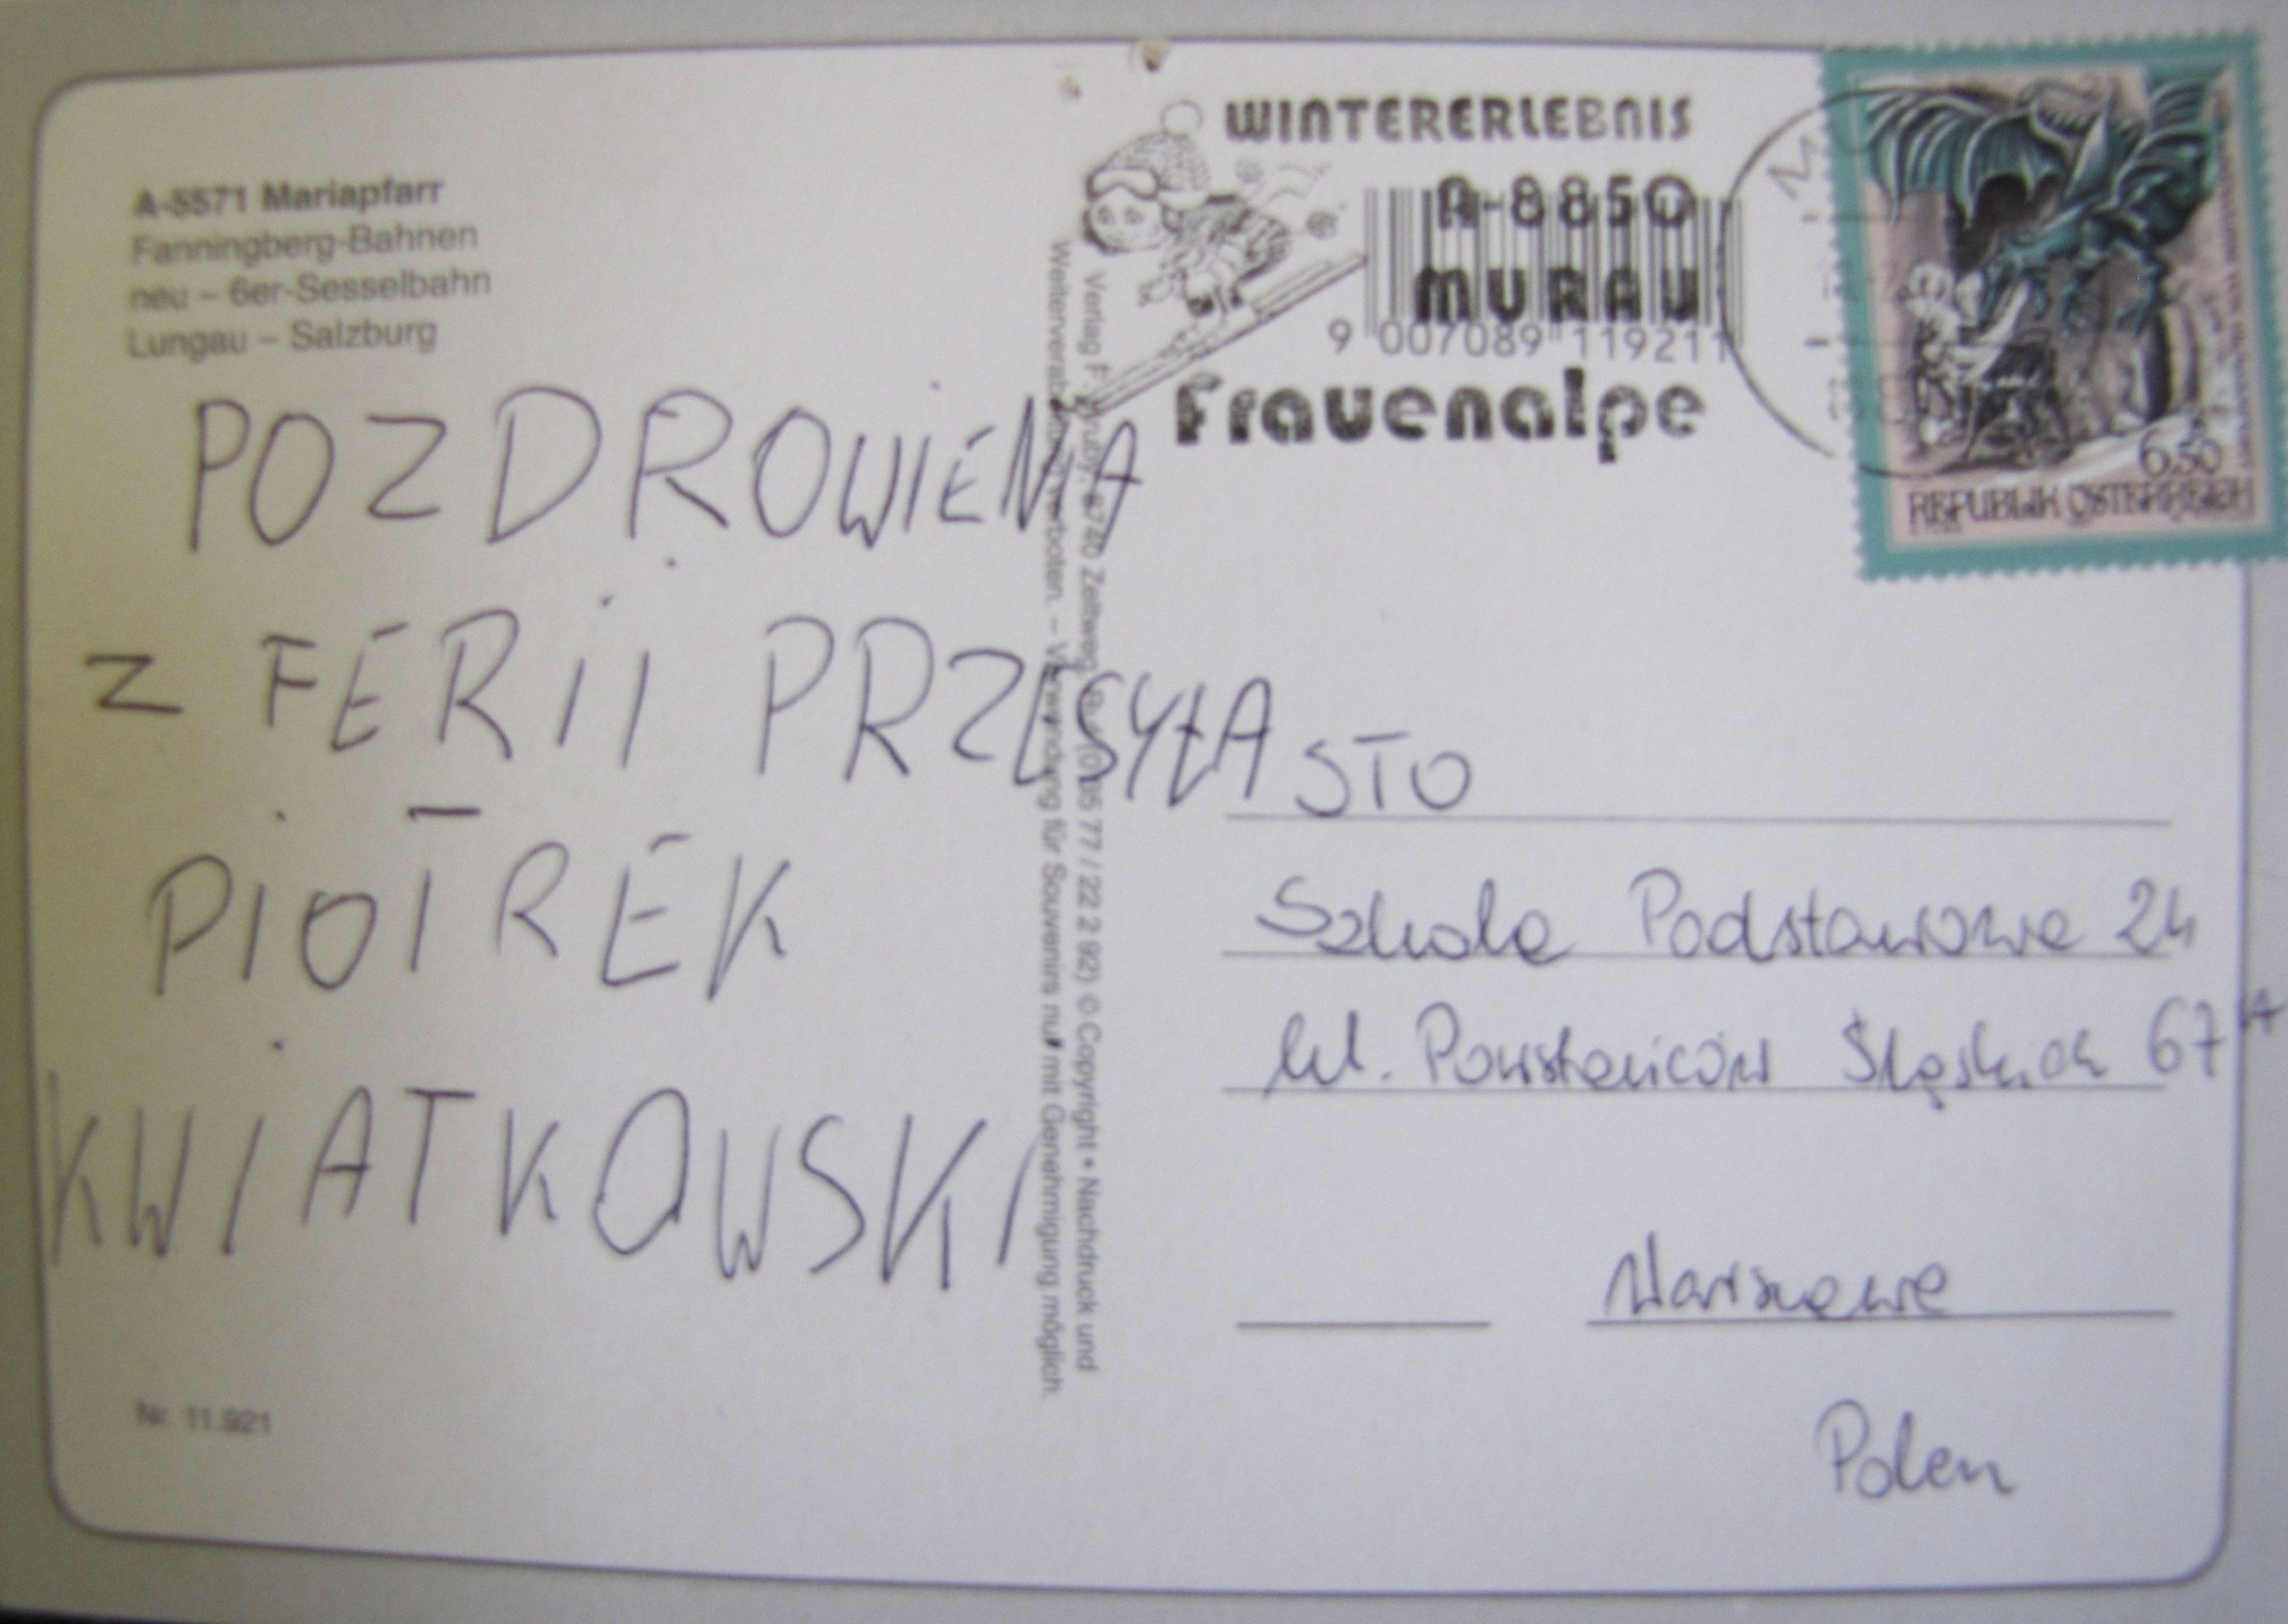 A-5571 Mariapfarr
Fanningberg-Bahnen
neu – 6er-Sesselbahn
Lungau – Salzburg
POZDROWIENA
Z FERII PRZESYŁA
PIOTREK
KWIATKOWSKI
Nr. 11.921
Verlag F. Hruby, 8740 Zeltweg, Ruf (0 35 77 / 22 2 92) © Copyright • Nachdruck und
Weiterverarbeitung verboten. – Verwendung für Souvenirs nur mit Genehmigung möglich.
WINTERERLEBNIS
A-8850
MURAU
9 007089 119211
Frauenalpe
6.50
REPUBLIK ÖSTERREICH
STO
Szkoła Podstawowa 24
ul. Powstańców Śląskich 67A
Warszawa
Polen